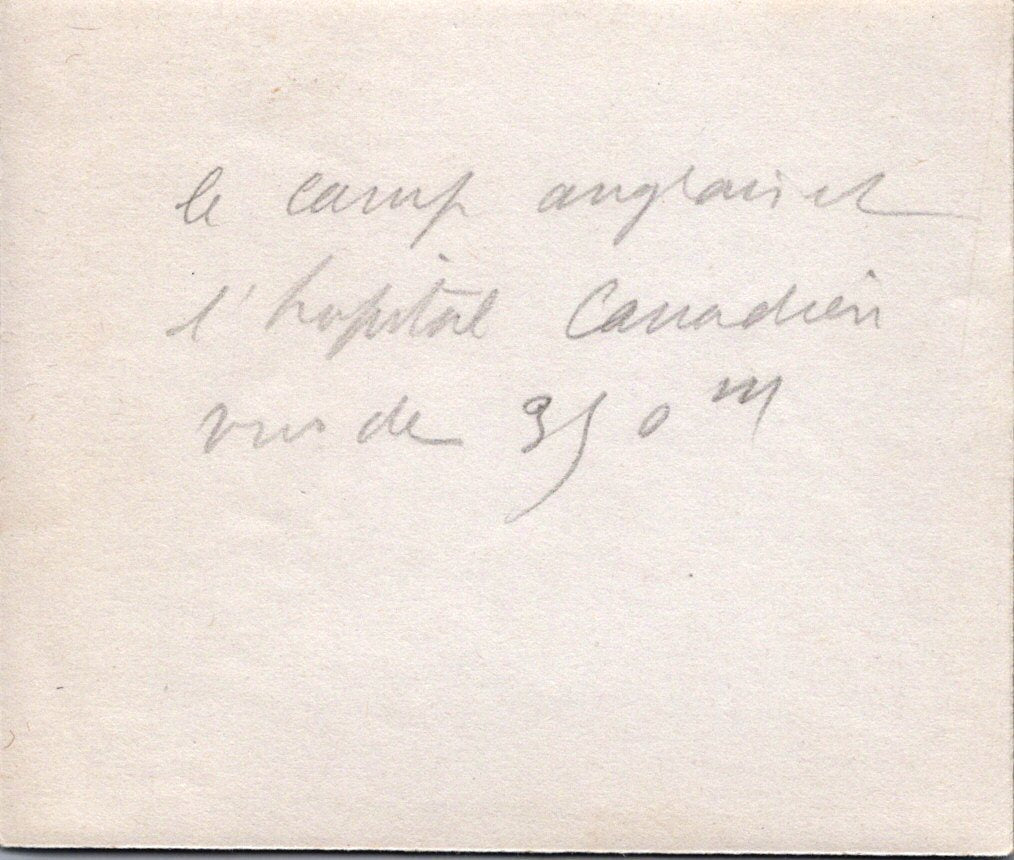 le camp anglais et
l'hopital Canadien
vus de 350 m